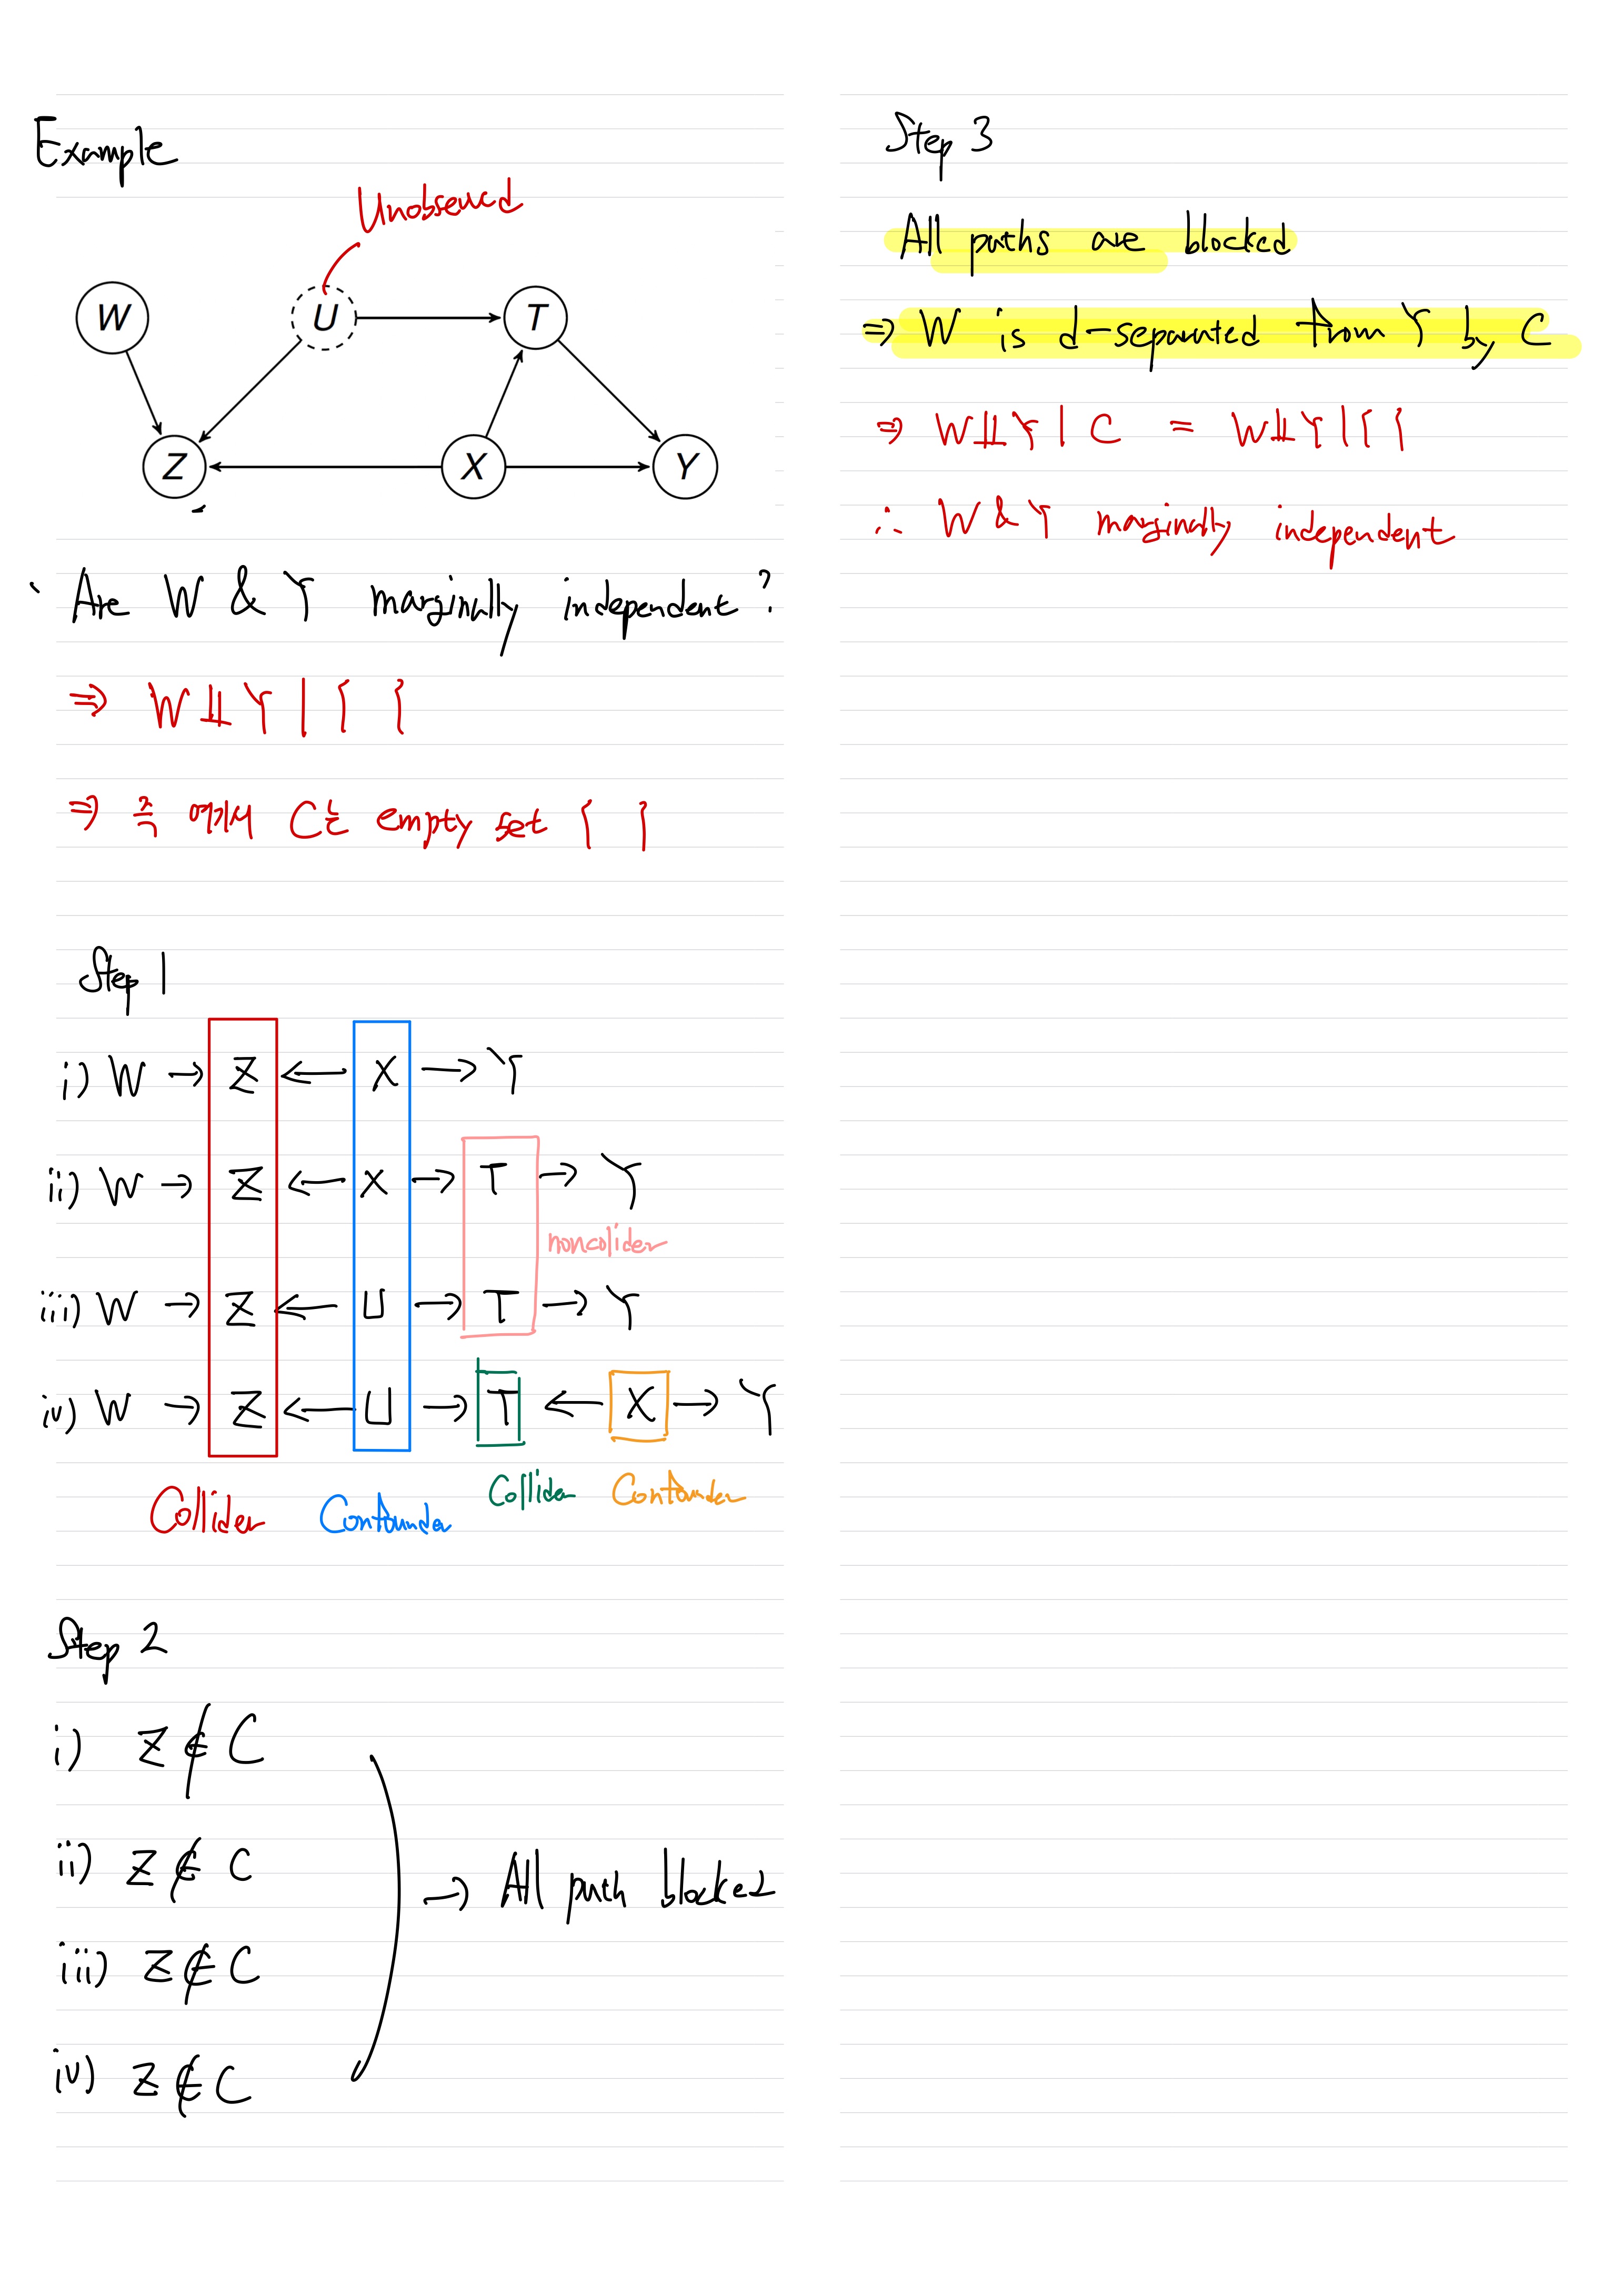 Example
Unobserved
W U T
Z X Y
Are W & Y marginally independent?
⇒ W ⫫ Y | { }
⇒ 즉 여기서 C는 empty set { }
Step 1
i) W → Z ← X → Y
ii) W → Z ← X → T → Y
noncolider
iii) W → Z ← U → T → Y
iv) W → Z ← U → T ← X → Y
Collider Confounder Collider Confounder
Step 2
i) Z ∉ C
ii) Z ∉ C
→ All path blocked
iii) Z ∉ C
iv) Z ∉ C
Step 3
All paths are blocked
⇒ W is d-separated from Y by C
⇒ W ⫫ Y | C = W ⫫ Y | { }
∴ W & Y marginally independent